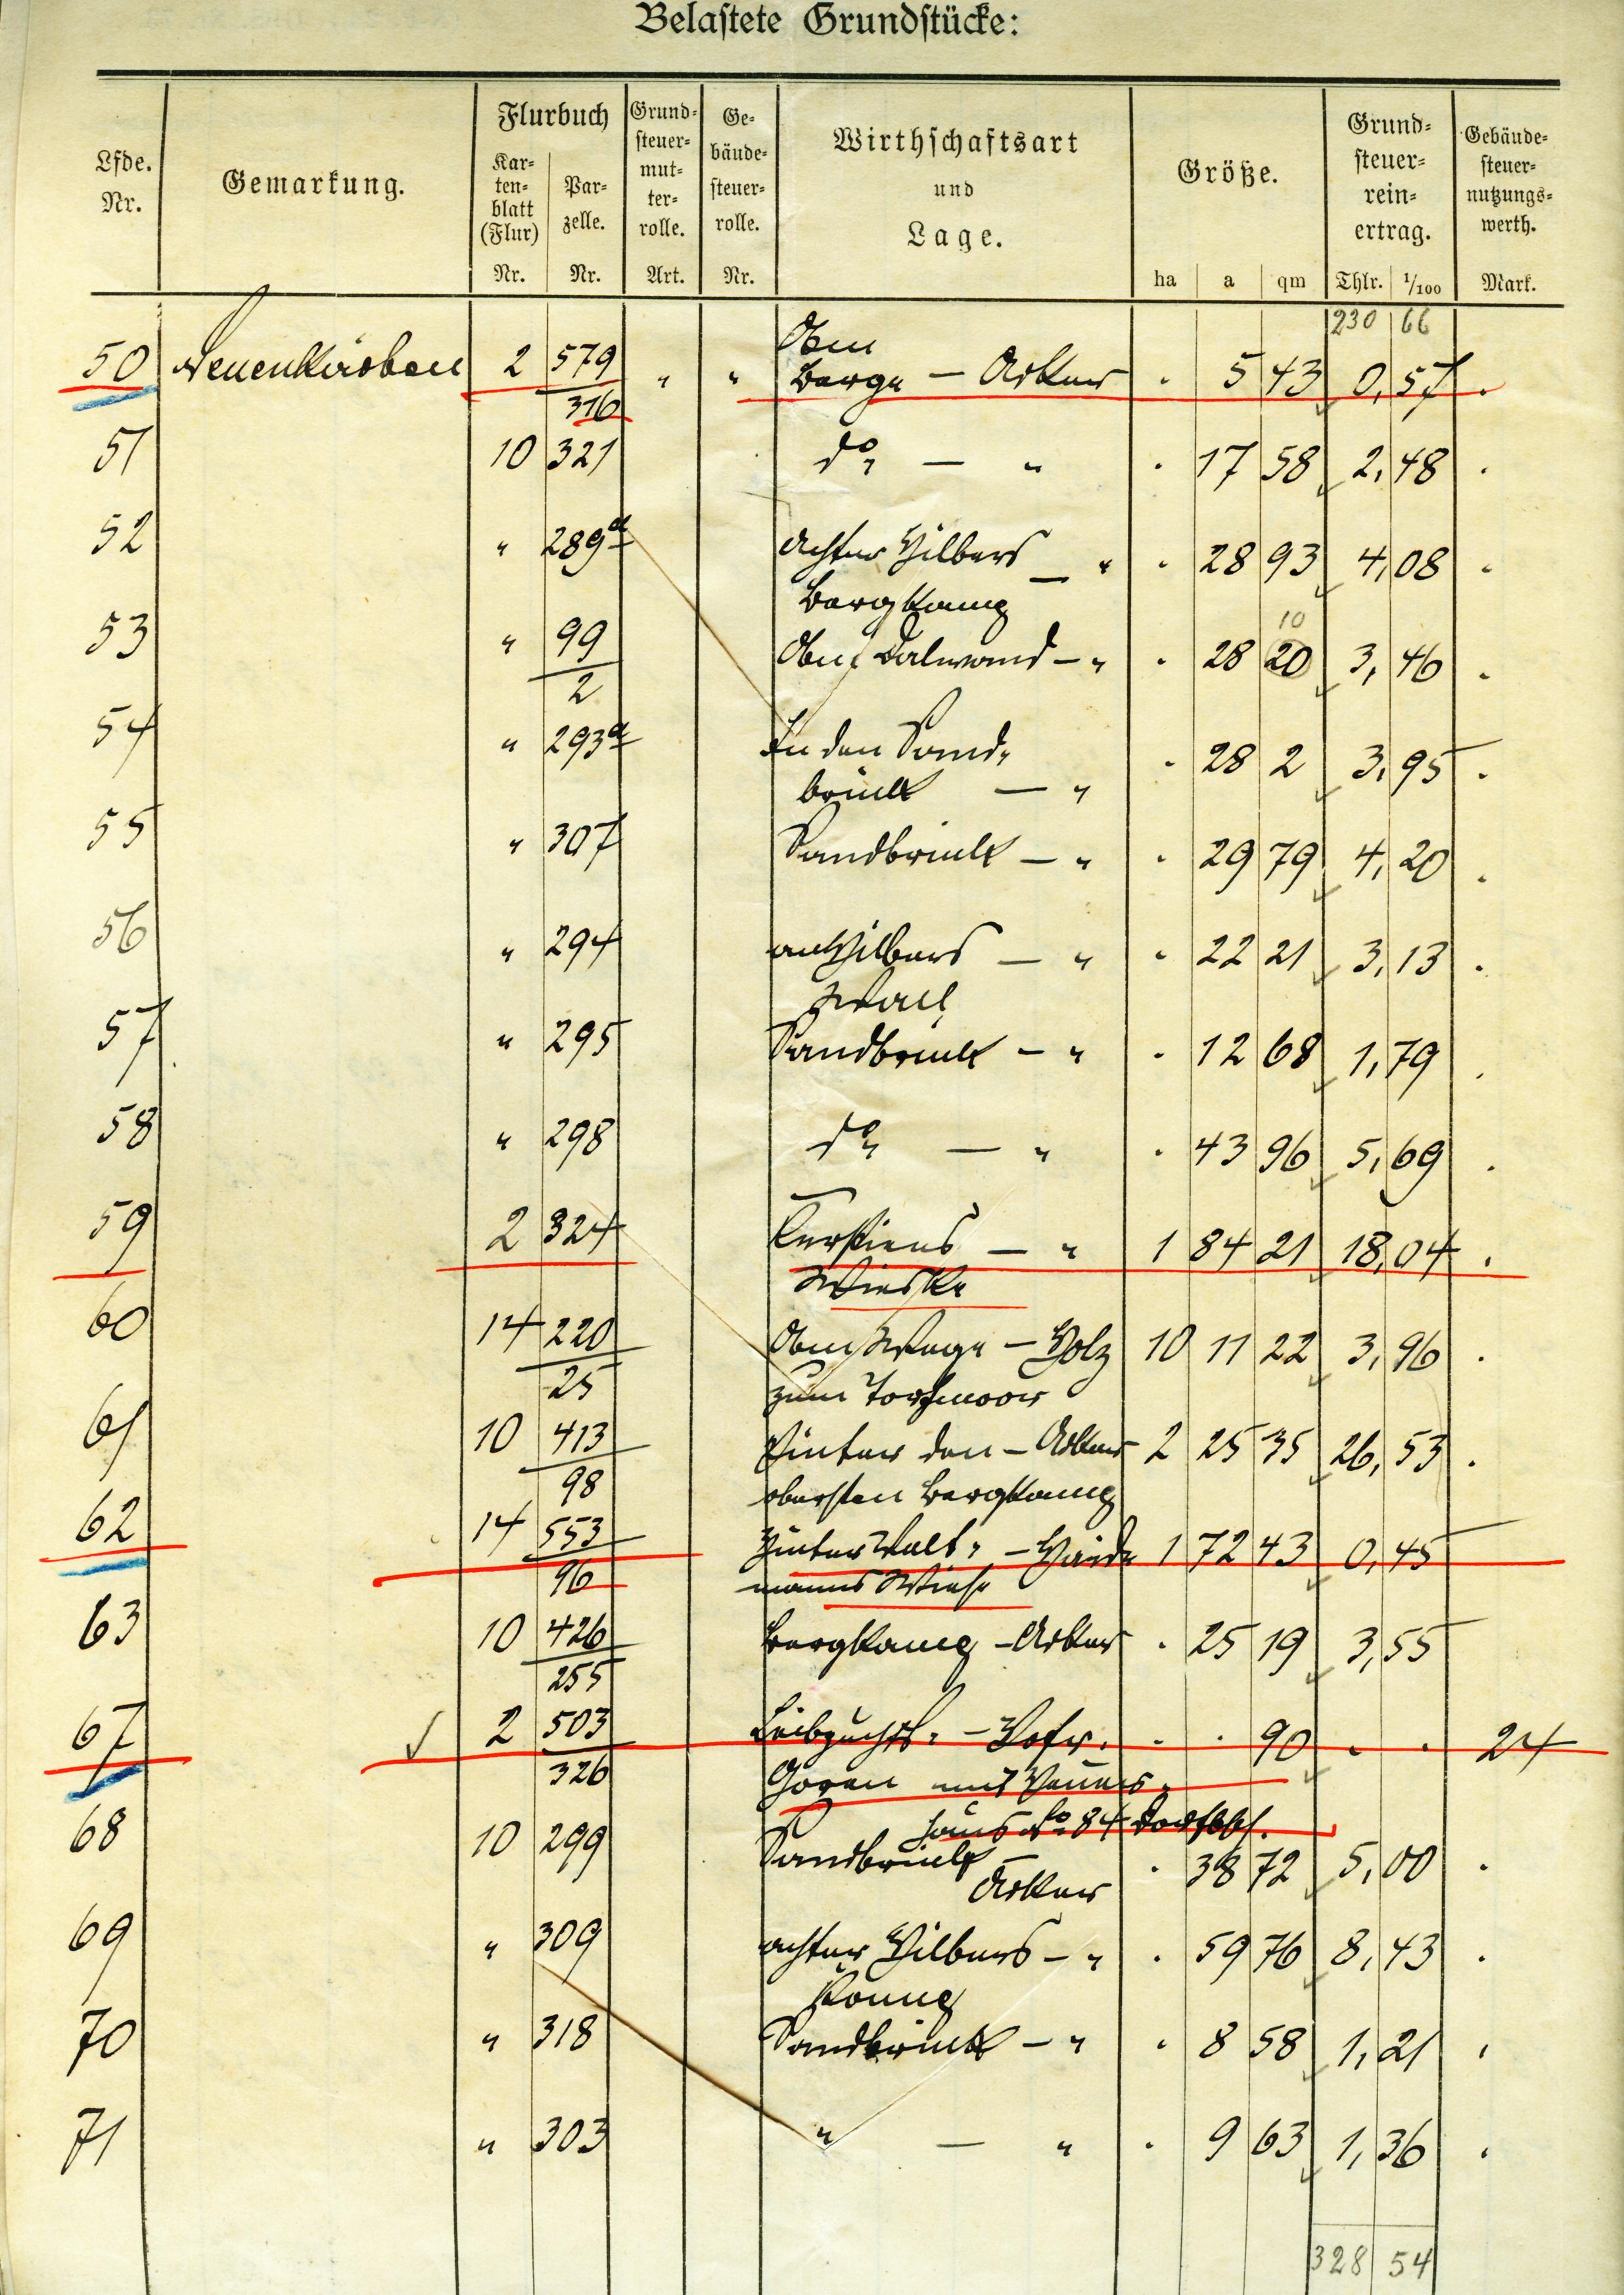 Belastete Grundstücke:
Lfde. Nr. | Gemarkung. | Flurbuch Kartenblatt (Flur) Nr. | Parzelle. Nr. | Grundsteuermutterrolle. Art. | Gebäudesteuerrolle. Nr. | Wirthschaftsart und Lage. | Größe. ha a qm | Grundsteuerreinertrag. Thlr. 1/100 | Gebäudesteuernutzungswerth. Mark.
230 66
Am
50 Neuenkirchen 2 579 " " Berge – Acker . 5 43 0,57 .
316
51 10 321 do – " . 17 58 2,48 .
52 " 289a achter Hilbers – " . 28 93 4,08 .
Bergkamp 10
53 " 99 Am – " . 28 20 3,46 .
2
54 " 293a In den Sand- . 28 2 3,95 .
brink – "
55 " 307 Sandbrink – " . 29 79 4,20 .
56 " 294 am Hilbers – " . 22 21 3,13 .
57 " 295 Sandbrink – " . 12 68 1,79 .
58 " 298 do – " . 43 96 5,69 .
59 2 324 – " 1 84 21 18,04 .
Wieske
60 14 220 Am Wege – Holz 10 11 22 3,96 .
25 zum Torfmoor
61 10 413 Hinter den – Acker 2 25 35 26,53 .
98 obersten Bergkamp
62 14 553 Hinter – Haide 1 72 43 0,45
96 manns Wiese
63 10 426 Bergkamp – Acker . 25 19 3,55
255
67 2 503 Leibzuchts- – Hofr. . . 90 . . 24
326 mit Heuers-
haus No 84
68 10 299 Sandbrink – . 38 72 5,00 .
Acker
69 " 309 achter Hilbers – " . 59 76 8,43 .
Kamp
70 " 318 Sandbrink – " . 8 58 1,21 .
71 " 303 " – " . 9 63 1,36 .
328 54